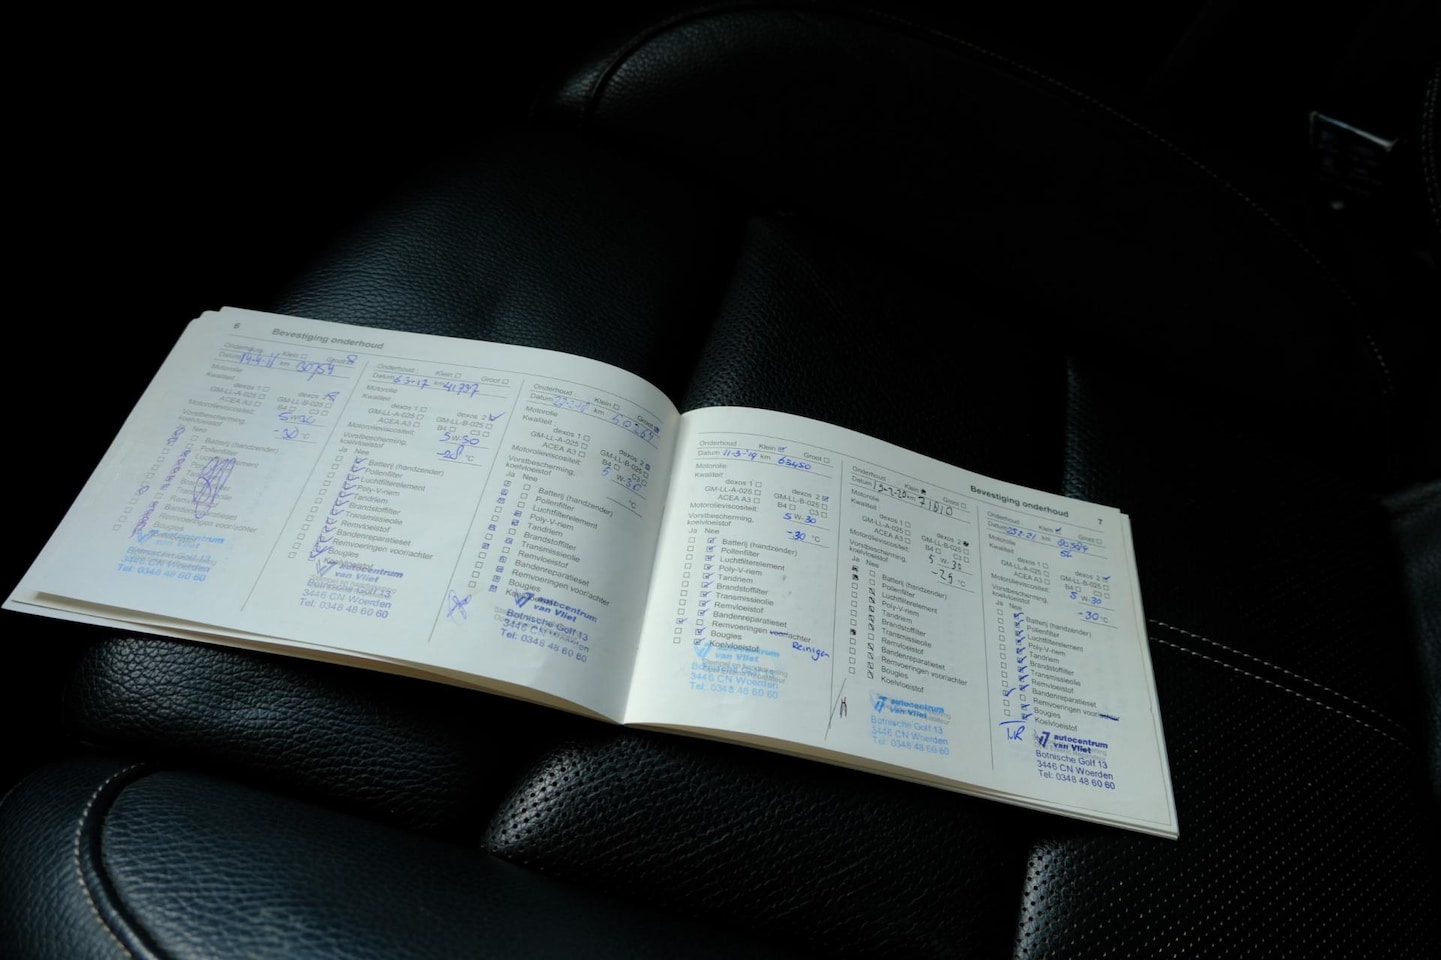 6 Bevestiging onderhoud
Onderhoud: Klein Groot
Datum km
Motorolie
Kwaliteit
dexos 1 dexos 2
GM-LL-A-025 GM-LL-B-025
ACEA A3 B4 C3
Motorolieviscositeit: 5 W-30
Vorstbescherming,
koelvloeistof -30 °C
Ja Nee
Batterij (handzender)
Pollenfilter
autocentrum
van Vliet
Botnische Golf 13
3446 CN Woerden
Tel: 0348 48 60 60
Onderhoud : Klein Groot
Datum 6-3-17 km 41797
Motorolie
Kwaliteit :
dexos 1 dexos 2
GM-LL-A-025 GM-LL-B-025
ACEA A3 B4 C3
Motorolieviscositeit: 5 W-30
Vorstbescherming,
koelvloeistof °C
Ja Nee
Batterij (handzender)
Pollenfilter
Luchtfilterelement
Poly-V-riem
Tandriem
Brandstoffilter
Transmissieolie
Remvloeistof
Bandenreparatieset
Remvoeringen voor/achter
Bougies
autocentrum
van Vliet
Botnische Golf 13
3446 CN Woerden
Tel: 0348 48 60 60
Onderhoud : Klein Groot
Datum km
Motorolie
Kwaliteit :
dexos 1 dexos 2
GM-LL-A-025 GM-LL-B-025
ACEA A3 B4 C3
Motorolieviscositeit: 5 W-30
Vorstbescherming,
koelvloeistof °C
Ja Nee
Batterij (handzender)
Pollenfilter
Luchtfilterelement
Poly-V-riem
Tandriem
Brandstoffilter
Transmissieolie
Remvloeistof
Bandenreparatieset
Remvoeringen voor/achter
Bougies
autocentrum
van Vliet
Botnische Golf 13
3446 CN Woerden
Tel: 0348 48 60 60
Bevestiging onderhoud 7
Onderhoud : Klein Groot
Datum 11-3-'19 km 63450
Motorolie
Kwaliteit :
dexos 1 dexos 2
GM-LL-A-025 GM-LL-B-025
ACEA A3 B4 C3
Motorolieviscositeit: 5 W-30
Vorstbescherming,
koelvloeistof -30 °C
Ja Nee
Batterij (handzender)
Pollenfilter
Luchtfilterelement
Poly-V-riem
Tandriem
Brandstoffilter
Transmissieolie
Remvloeistof
Bandenreparatieset
Remvoeringen voor/achter
Bougies Reinigen
Koelvloeistof
autocentrum
van Vliet
Botnische Golf 13
3446 CN Woerden
Tel: 0348 48 60 60
Onderhoud : Klein Groot
Datum km 71010
Motorolie
Kwaliteit :
dexos 1 dexos 2
GM-LL-A-025 GM-LL-B-025
ACEA A3 B4 C3
Motorolieviscositeit: 5 W-30
Vorstbescherming,
koelvloeistof °C
Ja Nee
Batterij (handzender)
Pollenfilter
Luchtfilterelement
Poly-V-riem
Tandriem
Brandstoffilter
Transmissieolie
Remvloeistof
Bandenreparatieset
Remvoeringen voor/achter
Bougies
Koelvloeistof
autocentrum
van Vliet
Botnische Golf 13
3446 CN Woerden
Tel: 0348 48 60 60
Onderhoud : Klein Groot
Datum km
Motorolie
Kwaliteit :
dexos 1 dexos 2
GM-LL-A-025 GM-LL-B-025
ACEA A3 B4 C3
Motorolieviscositeit: 5 W-30
Vorstbescherming,
koelvloeistof -30 °C
Ja Nee
Batterij (handzender)
Pollenfilter
Luchtfilterelement
Poly-V-riem
Tandriem
Brandstoffilter
Transmissieolie
Remvloeistof
Bandenreparatieset
Remvoeringen
Bougies
Koelvloeistof
autocentrum
van Vliet
Botnische Golf 13
3446 CN Woerden
Tel: 0348 48 60 60